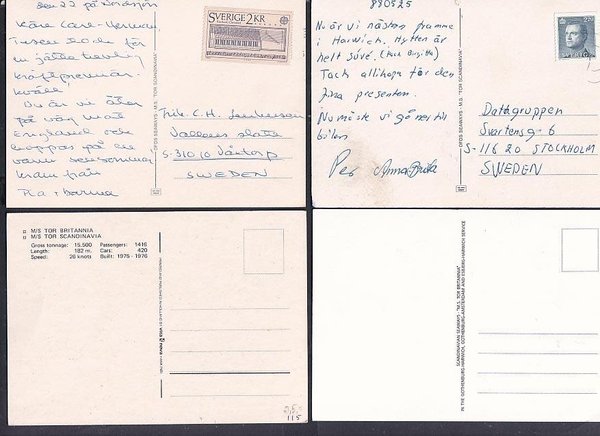 på Nordsjön
Käre Carl-Herman
Tusen tack för
en jätte trevlig
kräftpremiär-
kväll!
Nu är vi åter
på väg mot
England och
hoppas på en
varm sensommar
kram från
SVERIGE 2 KR
C.H.
Vallens slätt
S-310 10 Våxtorp
SWEDEN
DFDS SEAWAYS - M.S. TOR BRITANNIA
880525
Nu är vi nästan framme
i Harwich. Hytten är
helt suve. (Tack Birgitta)
Tack allihopa för den
fina presenten.
Nu måste vi gå ner till
bilen
Per Anna-Brita
DFDS SEAWAYS - M.S. TOR BRITANNIA
Datagruppen
Svartensg-6
S-116 20 STOCKHOLM
SWEDEN
M/S TOR BRITANNIA
M/S TOR SCANDINAVIA
Gross tonnage: 15,500 Passengers: 1416
Length: 182 m. Cars: 420
Speed: 26 knots Built: 1975-1976
115
SCANDINAVIAN SEAWAYS' "M.S. TOR BRITANNIA"
IN THE GOTHENBURG-HARWICH, GOTHENBURG-AMSTERDAM AND ESBJERG-HARWICH SERVICE